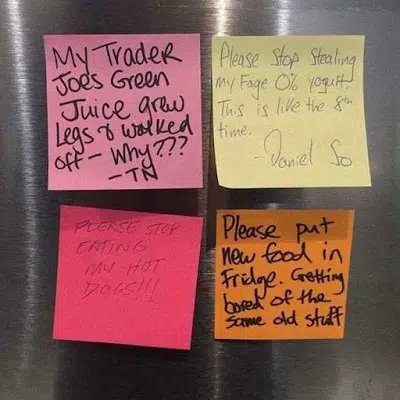 My Trader
Joes Green
Juice grew
Legs & walked
off – Why???
– TN
Please Stop Stealing
my Fage 0% yogurt.
This is like the 8th
time.
- Daniel So
PLEASE STOP
EATING
MY HOT
DOGS!!!
Please put
new food in
Fridge. Getting
bored of the
same old stuff